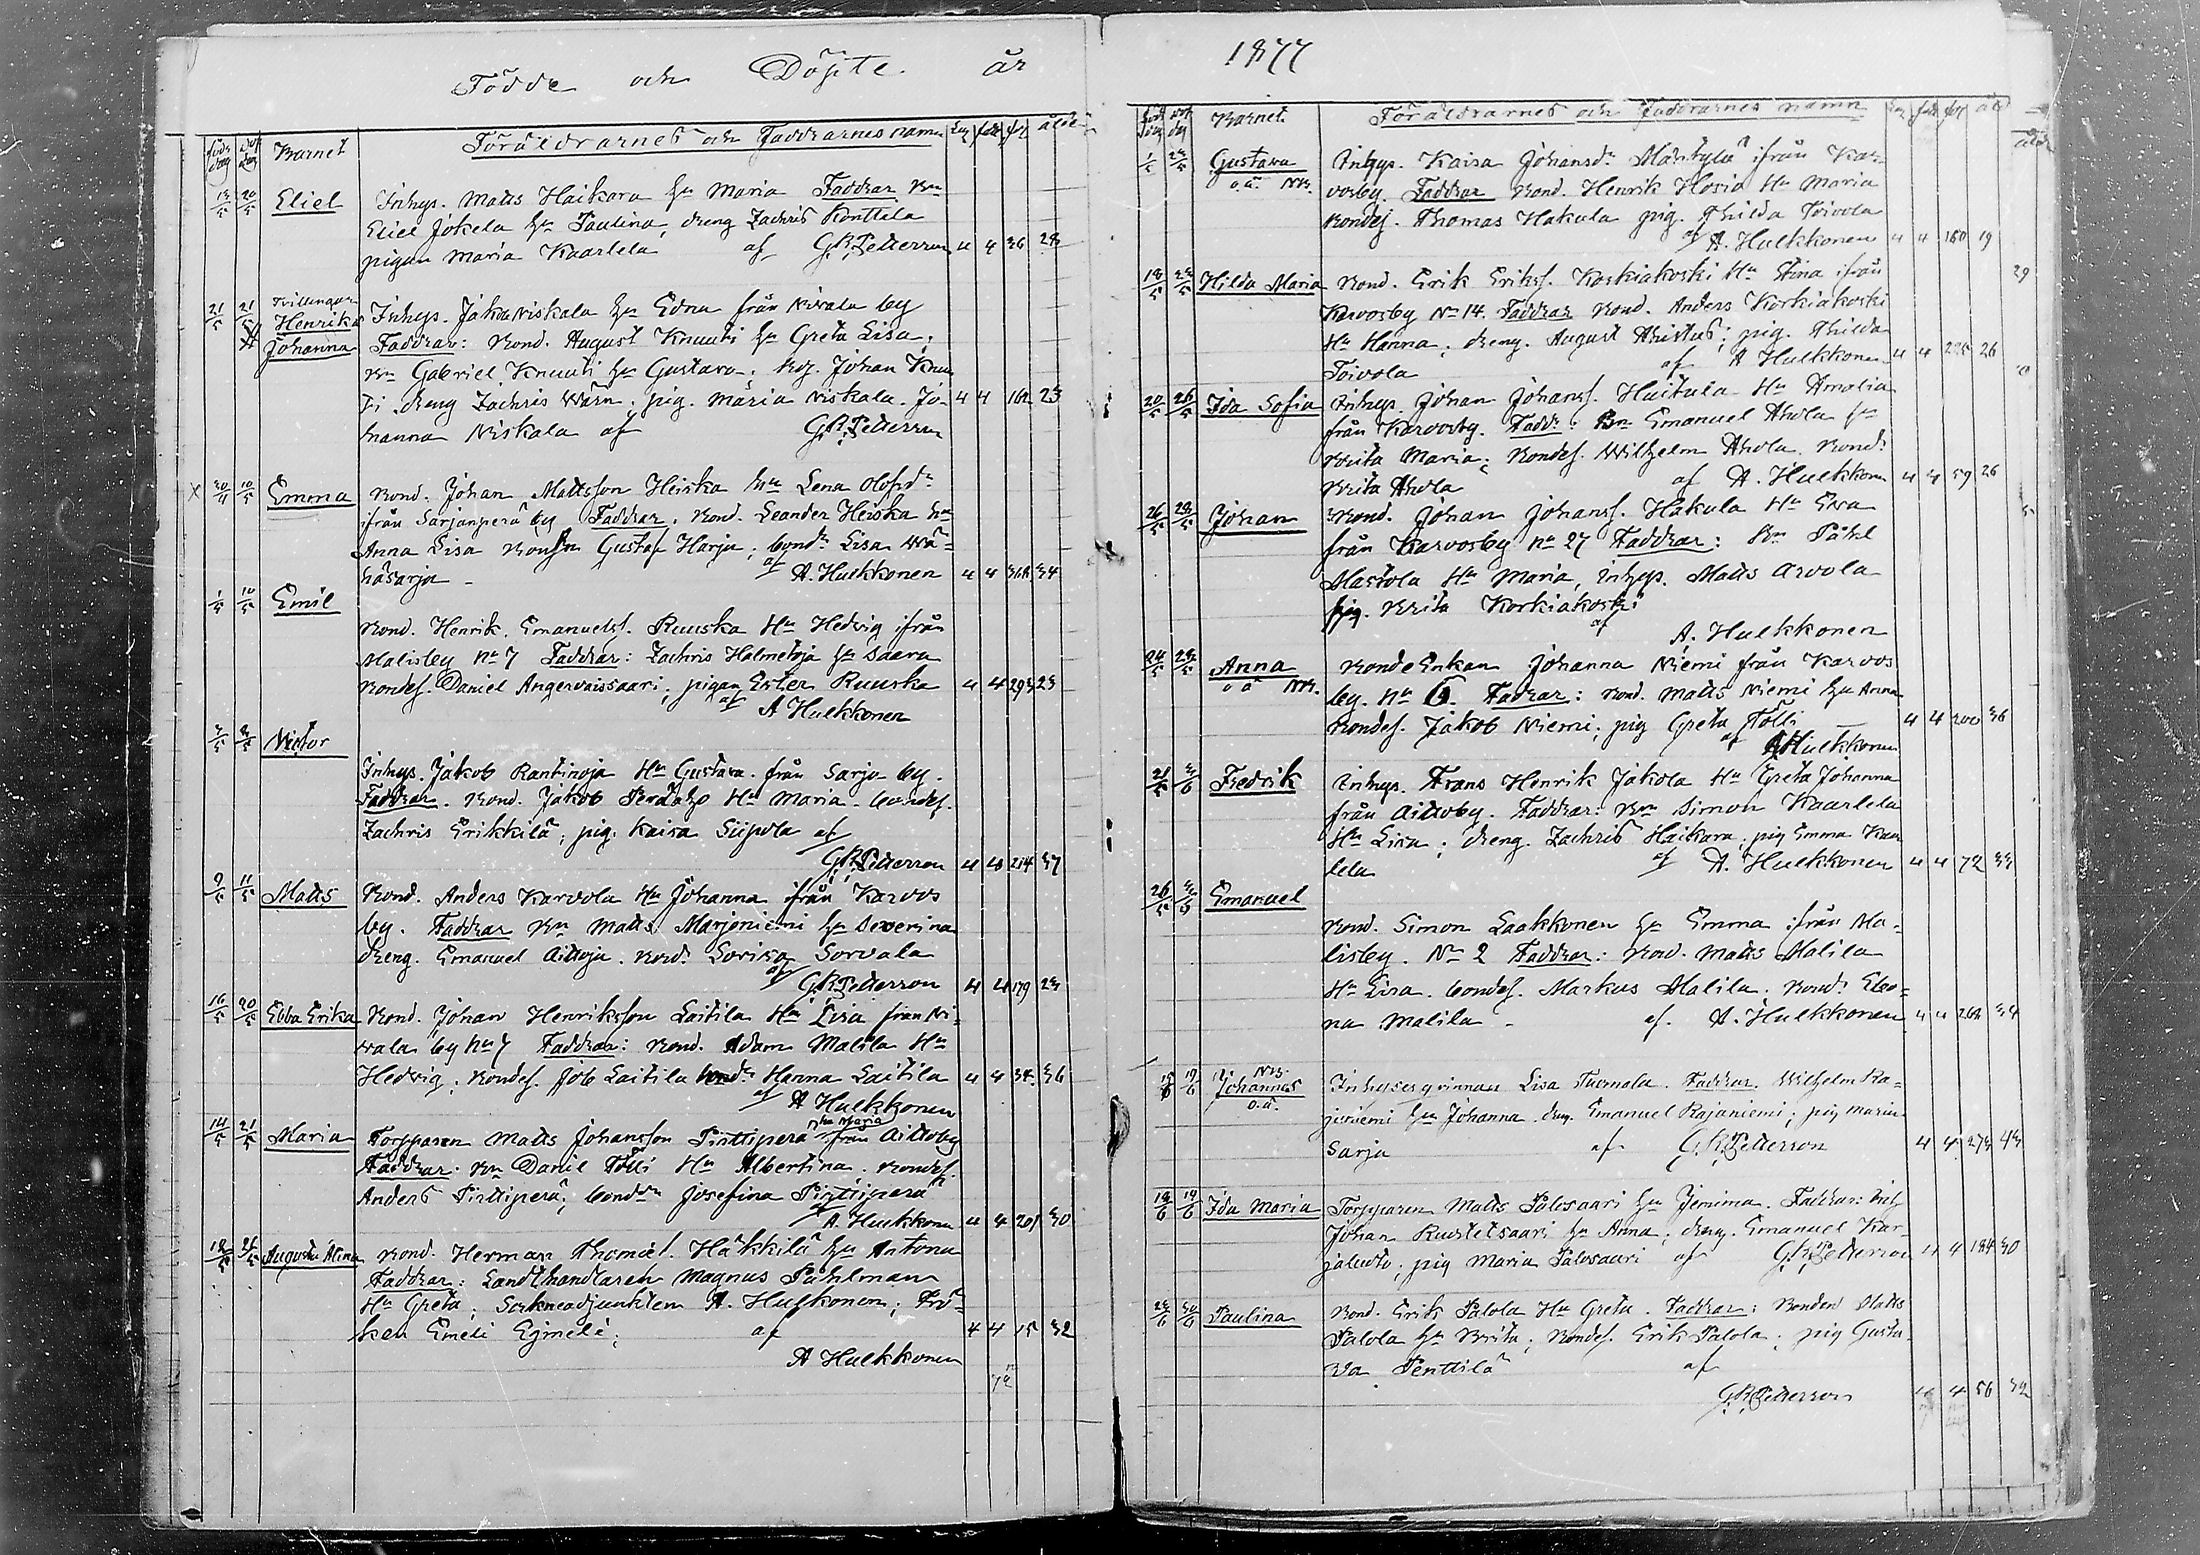 Födde och Döpte år
föd. dag döp. dag Barnet Föräldrarnes och Faddrarnes namn ålder
13/5 20/5 Eliel Inhys. Matts Haikara hu Maria Faddrar Bn
Eliel Jokela hu Paulina, dreng Zachris Konttila
pigan Maria Kaarlela af G.R. Petterson 4 4 36 28
21/5 21/5 Tvillingar
Henrika Inhys. Jakob Niskala hu Edna från Nivala by
Johanna Faddrar: Bond. August Knuuti hu Greta Lisa,
Bn Gabriel Knuuti hu Gustava. Johan Knuu
ti dreng Zachris Wärn. pig. Maria Niskala. Jo- 4 4 162 23
hanna Niskala af G.R. Petterson
x 30/4 10/5 Emma Bond. Johan Mattsson Heiska hu Lena Olofsdr
ifrån Sarjanperä by Faddrar. Bond. Leander Heiska hu
Anna Lisa Gustaf Harju; bondr Lisa Wä-
häsarja - af A. Hulkkonen 4 4 368 34
1/5 10/5 Emil
Bond. Henrik. Emanuelss. Ruuska Hu Hedvig ifrån
Malisby No 7 Faddrar: Zachris Halmetoja hu Saara
Bondes. Daniel Angervaissaari; pigan Ester Ruuska 4 4 293 23
af A Hulkkonen
Victor
Inhys. Jakob Rantinoja Hu Gustava från Sarja by.
Faddrar. Bond. Jakob Perätalo Hu Maria bondes.
Zachris Erikkilä; pig. Kaisa Siipola af
G.R. Petterson 4 4 214 37
9/5 11/5 Matts Bond. Anders Karvola Hu Johanna ifrån Karvos
by. Faddrar Bn Matts Marjoniemi hu Severina
dreng. Emanuel Aittoja. Bondr Sorvala
af G.R. Petterson 4 4 179 23
16/5 20/5 Ebba Erika Bond. Johan Henriksson Laitila Hu Lisa från Ni-
vala by No 7 Faddrar: Bond. Adam Malila Hu
Hedvig. Bondes. Job Laitila Bondr Hanna Laitila 4 4 34 36
af A Hulkkonen
14/5 21/5 Maria Torpparen Matts Johansson Pirttiperä hu Maria från Aittoby
Faddrar. Bn Daniel Tölli Hu Albertina. Bondes
Anders Pirttiperä; bonddr Josefina Pirttiperä
af A. Hulkkonen 4 4 201 30
Augusta Alina Bond. Herman Thomæs. Häkkilä hu Antona
Faddrar: Landthandlaren Magnus Påhlman
Hu Greta; Sockneadjunkten A. Hulkonen; Frö-
ken Emeli Ejmele; af 4 4 15 32
A Hulkkonen
1877
föd. dag döp. dag Barnet Föräldrarnes och Faddrarnes namn
Gustava Inhys. Kaisa Johansdr Mäntylä ifrån Kar-
o.ä. vosby. Faddrar Bond. Henrik Hosio Hu Maria
Bondes. Thomas Hakula pig. Thilda Toivola
af A. Hulkkonen 4 4 180 19
Hilda Maria Bond. Erik Erikss. Korkiakoski Hu Stina ifrån 29
Karvosby No 14. Faddrar Bond. Anders Korkiakoski
Hu Hanna; dreng. August Ahistus; pig. Thilda
Toivola af A Hulkkonen 4 4 26
20/5 26/5 Ida Sofia Inhys. Johan Johanss. Huitula Hu Amalia
från Karvosby. Fadd: Bn Emanuel Ahola hu
Brita Maria; Bondes. Wilhelm Ahola. Bondr
Brita Ahola af A. Hulkkonen 4 4 59 26
Johan Bond. Johan Johanss. Hakula Hu Eva
från Karvosby No 27 Faddrar: Bn Påhl
Mastola Hu Maria, inhys. Matts Arvola
pig. Brita Korkiakoski
af A. Hulkkonen
Anna Bonde Enkan Johanna Niemi från Karvos
o.ä. by. No 6. Faddrar: Bond. Matts Niemi hu Anna
Bondes. Jakob Niemi; pig Greta Tölli 4 4 200 36
af A Hulkkonen
Fredrik Inhys. Frans Henrik Jakola Hu Greta Johanna
från Aittoby. Faddrar: Bn Simon Kaarlela
Hu Lisa; dreng. Zachris Haikara; pig Emma Kaar
lela af A. Hulkkonen 4 4 72 33
Emanuel
Bond. Simon Laakkonen hu Emma ifrån Ma-
lisby. No 2 Faddrar: Bond. Matts Malila
Hu Lisa. bondes. Markus Malila. Bondr Eleo-
na Malila - af A. Hulkkonen 4 4 268 34
Johannes Inhysesqvinnan Lisa Tuomala. Faddrar. Wilhelm Ra-
o.ä. janiemi hu Johanna dreng. Emanuel Rajaniemi; pig Maria
Sarja af G.R. Petterson 4 4 273 43
19/6 Ida Maria Torpparen Matts Palosaari hu Jemima. Faddrar: Inh
Johan Ruostetsaari hu Anna; dreng. Emanuel Kar-
jaluoto; pig Maria Palosaari af G.R. Petterson 4 4 184 30
Paulina Bond. Erik Palola Hu Greta. Faddrar: Bonden Matts
Palola hu Brita; Bondes. Erik Palola; pig Gusta-
va Penttilä af
G.R. Petterson 4 56 32